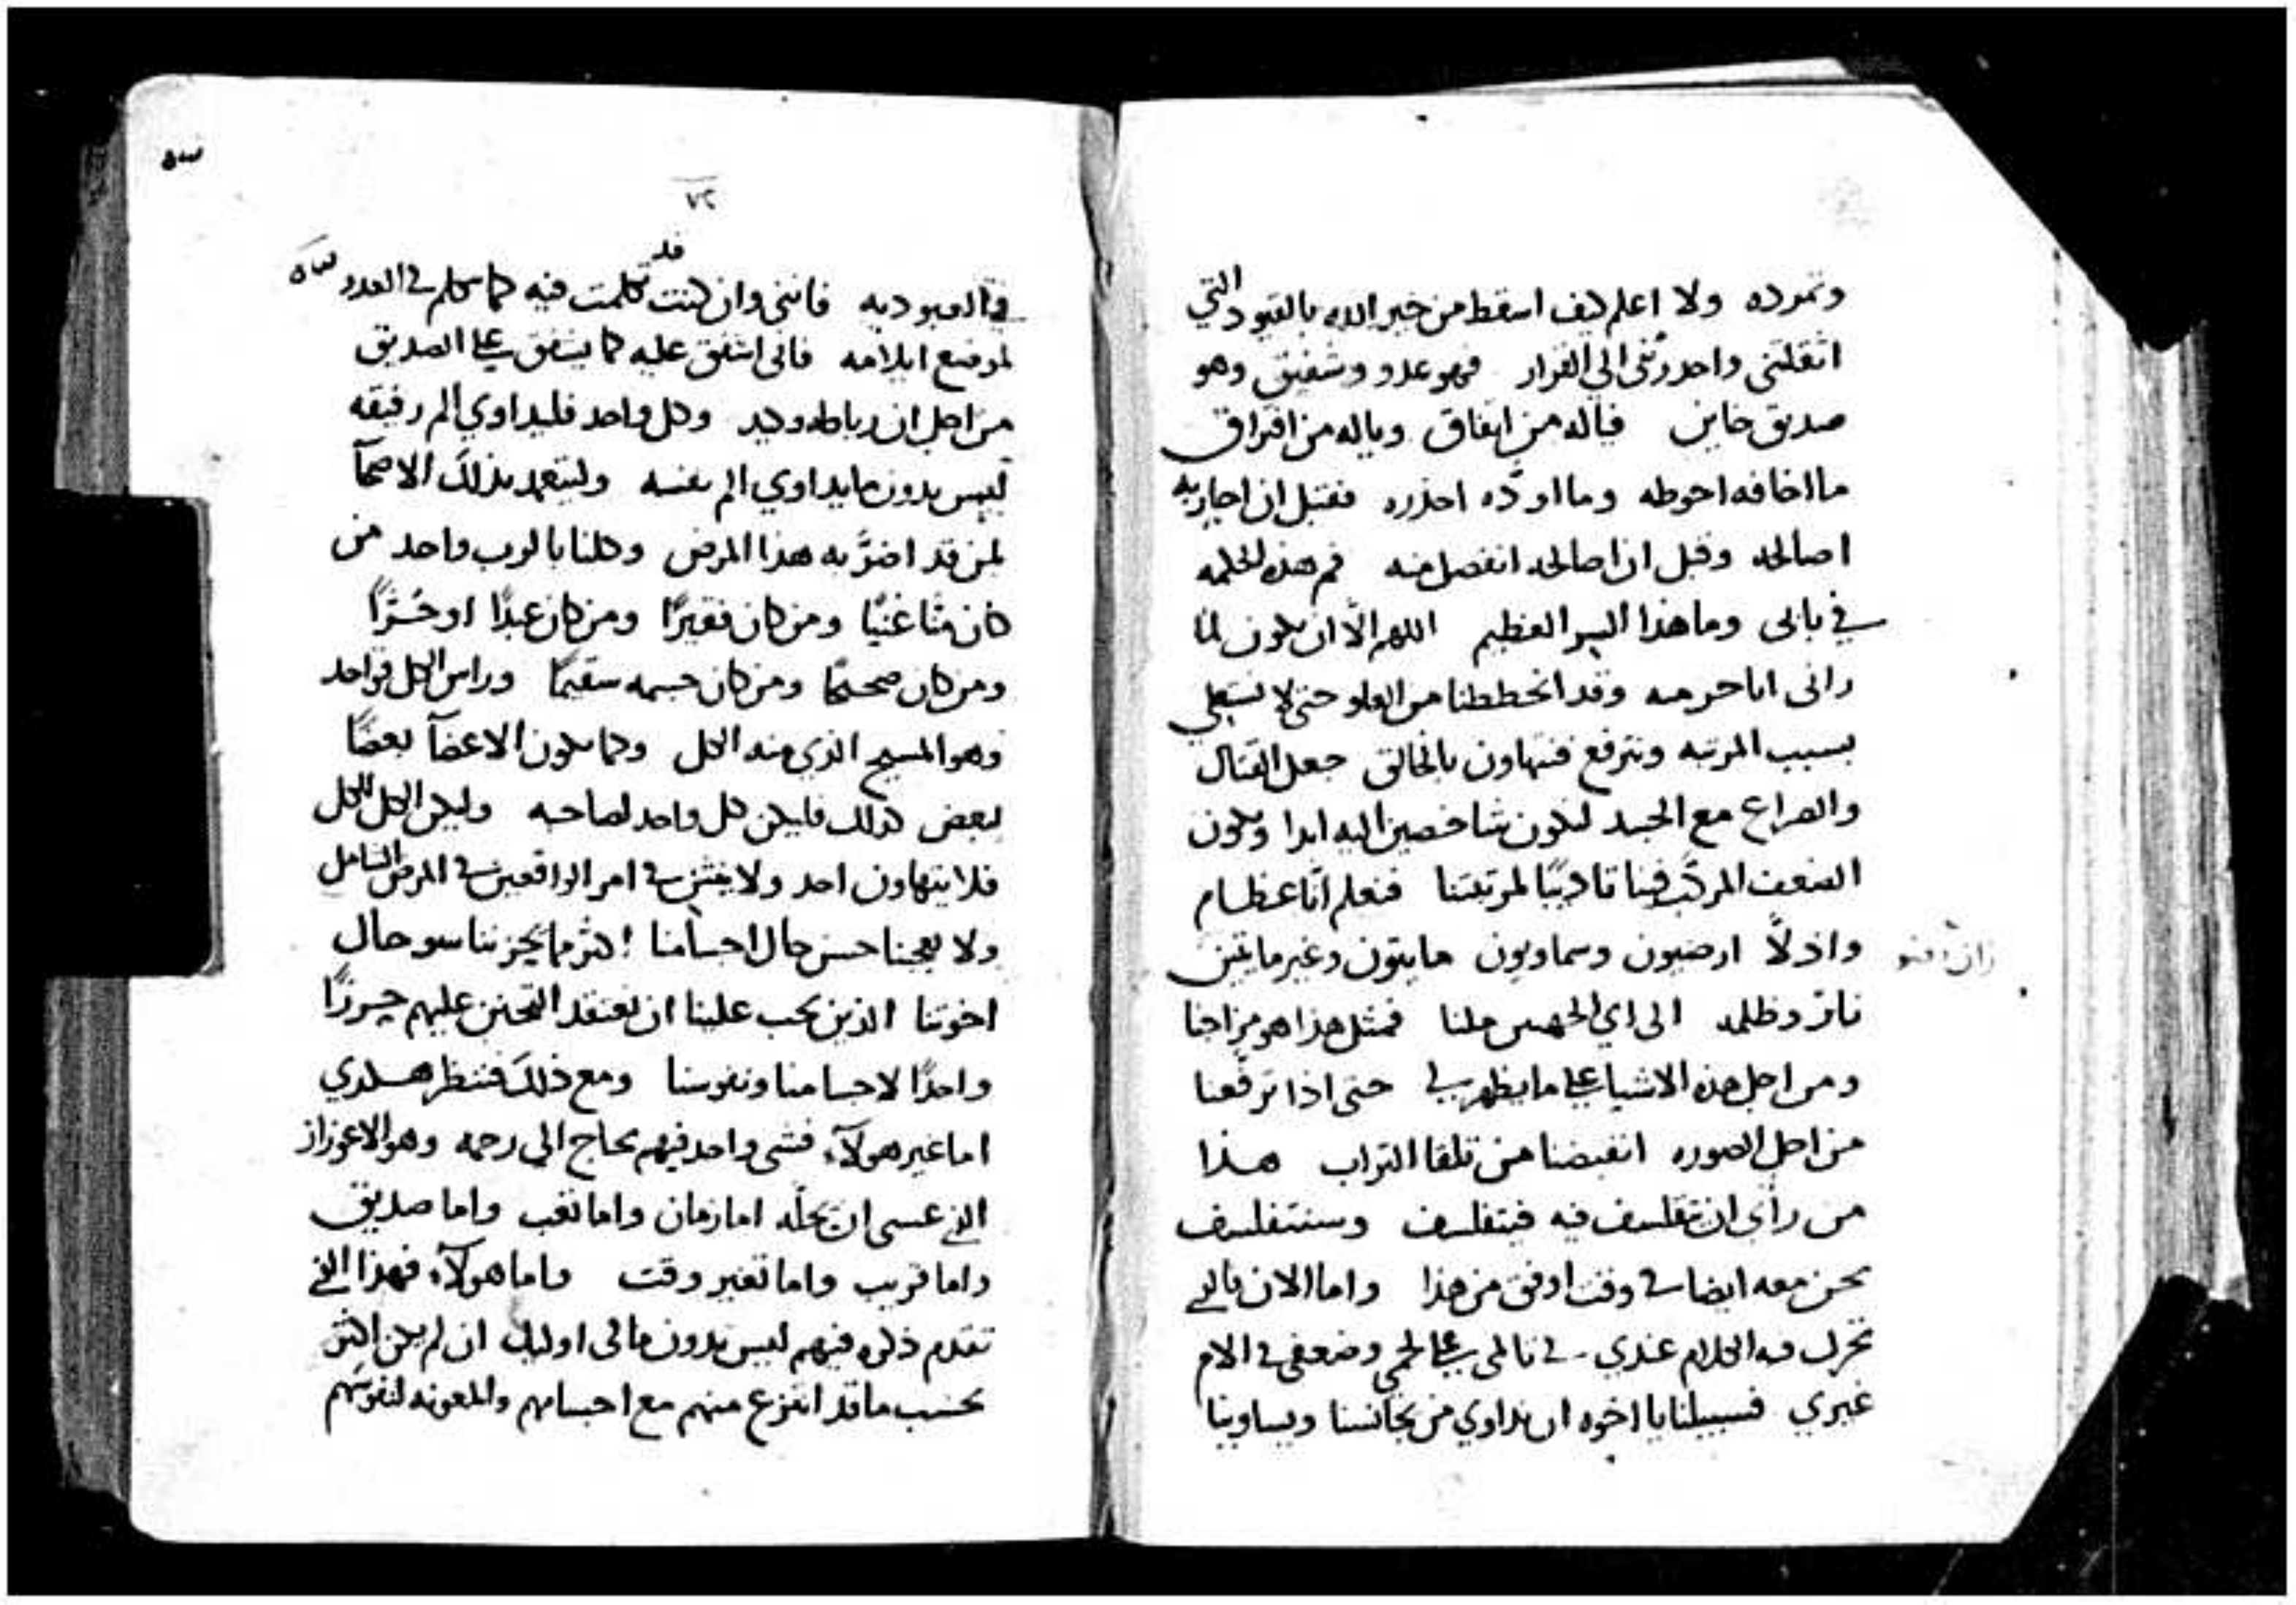 وتمرده ولا اعلم كيف اسقط من خير الله بالقيود التي
اثقلتني واحدرتني الي القرار فهو عدو وشفيق وهو
صديق خاين فياله من اتفاق وياله من افتراق
ما اخافه احوطه وما اودّه احذره فقبل ان احاربه
اصالحه وقبل ان اصالحه انفصل منه فم هذه الحكمه
في بابي وما هذا السر العظيم اللهم الّا ان يكون لمّا
وقد انحططنا من العلو حتى لا نستعلي
بسبب المرتبه ونترفع فنتهاون بالخالق جعل القتال
والصراع مع الجسد لنكون شاخصين اليه ابدا ويكون
الضعف المركّب فينا تاديبًا لمرتبتنا فنعلم انّا عظام
واذلّا ارضيون وسماويون مايتون وغير مايتين
نار وظلمه الى اي الجهتين ملنا فمثل هذا هو مزاجنا
ومن اجل هذه الاشيا على ما يظهر لي حتى اذا ترفّعنا
من اجل الصوره انقبضنا من تلقا التراب هذا
من راى ان يتفلسف فيه فيتفلسف وسنتفلسف
نحن معه ايضا في وقت اوفق من هذا واما الان فالذي
تحرك فيه الكلام عندي في تالمي على لحمي وضعفي في الام
غيري فسبيلنا يا اخوه ان نداوي من يجانسنا ويساوينا
٧٢
في العبوديه فانني وان كنت قد تكلمت فيه كما يتكلم في العدو
لموضع ايلامه فاني اشفق عليه كما يشفق على الصديق
من اجل ان رباطه وكيد وكل واحد فليداوي الم رفيقه
ليس بدون ما يداوي الم نفسه وليتعهد بذلك الاصحآ
لمن قد اضرّ به هذا المرض وكلنا بالرب واحد من
كان منّا غنيًا ومن كان فقيرًا ومن كان عبدًا او حُرًّا
ومن كان صحيحًا ومن كان جسمه سقيمًا وراس الكل فواحد
وهو المسيح الذي منه الكل وكما يكون الاعضآ بعضًا
لبعض كذلك فليكن كل واحد لصاحبه وليكن الكل للكل
فلا يتهاون احد ولا في امر الواقعين في المرض الشامل
ولا يعجبنا حسن حال اجسامنا اكثر ما يحزننا سو حال
اخوتنا الذين يجب علينا ان نعتقد التحنن عليهم حرزًا
واحدًا لاجسامنا ونفوسنا ومع ذلك فننظر هكذي
اما غير هولآء فشى واحد فيهم يحتاج الي رحمه وهو الاعواز
الذي عسى ان يحلّه اما زمان واما تعب واما صديق
واما قريب واما تغير وقت واما هولآء فهذا الذي
تقدم ذكره فيهم ليس بدون ما في اوليك ان لم يكن اكثر
بحسب ما قد انتزع منهم مع اجسامهم والمعونه لنفوسهم